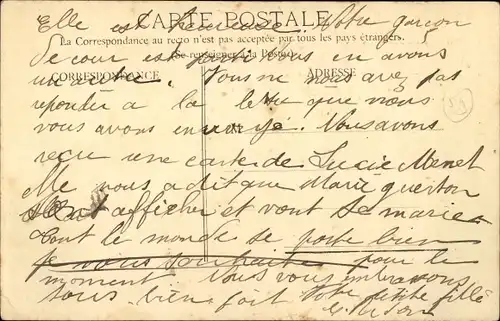 CARTE POSTALE
Elle est Notre garçon
La Correspondance au recto n'est pas acceptée par tous les pays étrangers.
(Se renseigner à la Poste)
de cour est parti nous en avons
CORRESPONDANCE ADRESSE
un autre. Vous ne nous avez pas
reponder a la lettre que nous
vous avons envoyé. Nous avons
M
recu une carte de Lucie Menet
Elle nous a dit que Marie
afficher et vont se marie
tout le monde se porte bien
je vous souhaite pour le
moment. Nous vous embrassons
tous bien fort Votre petite fille